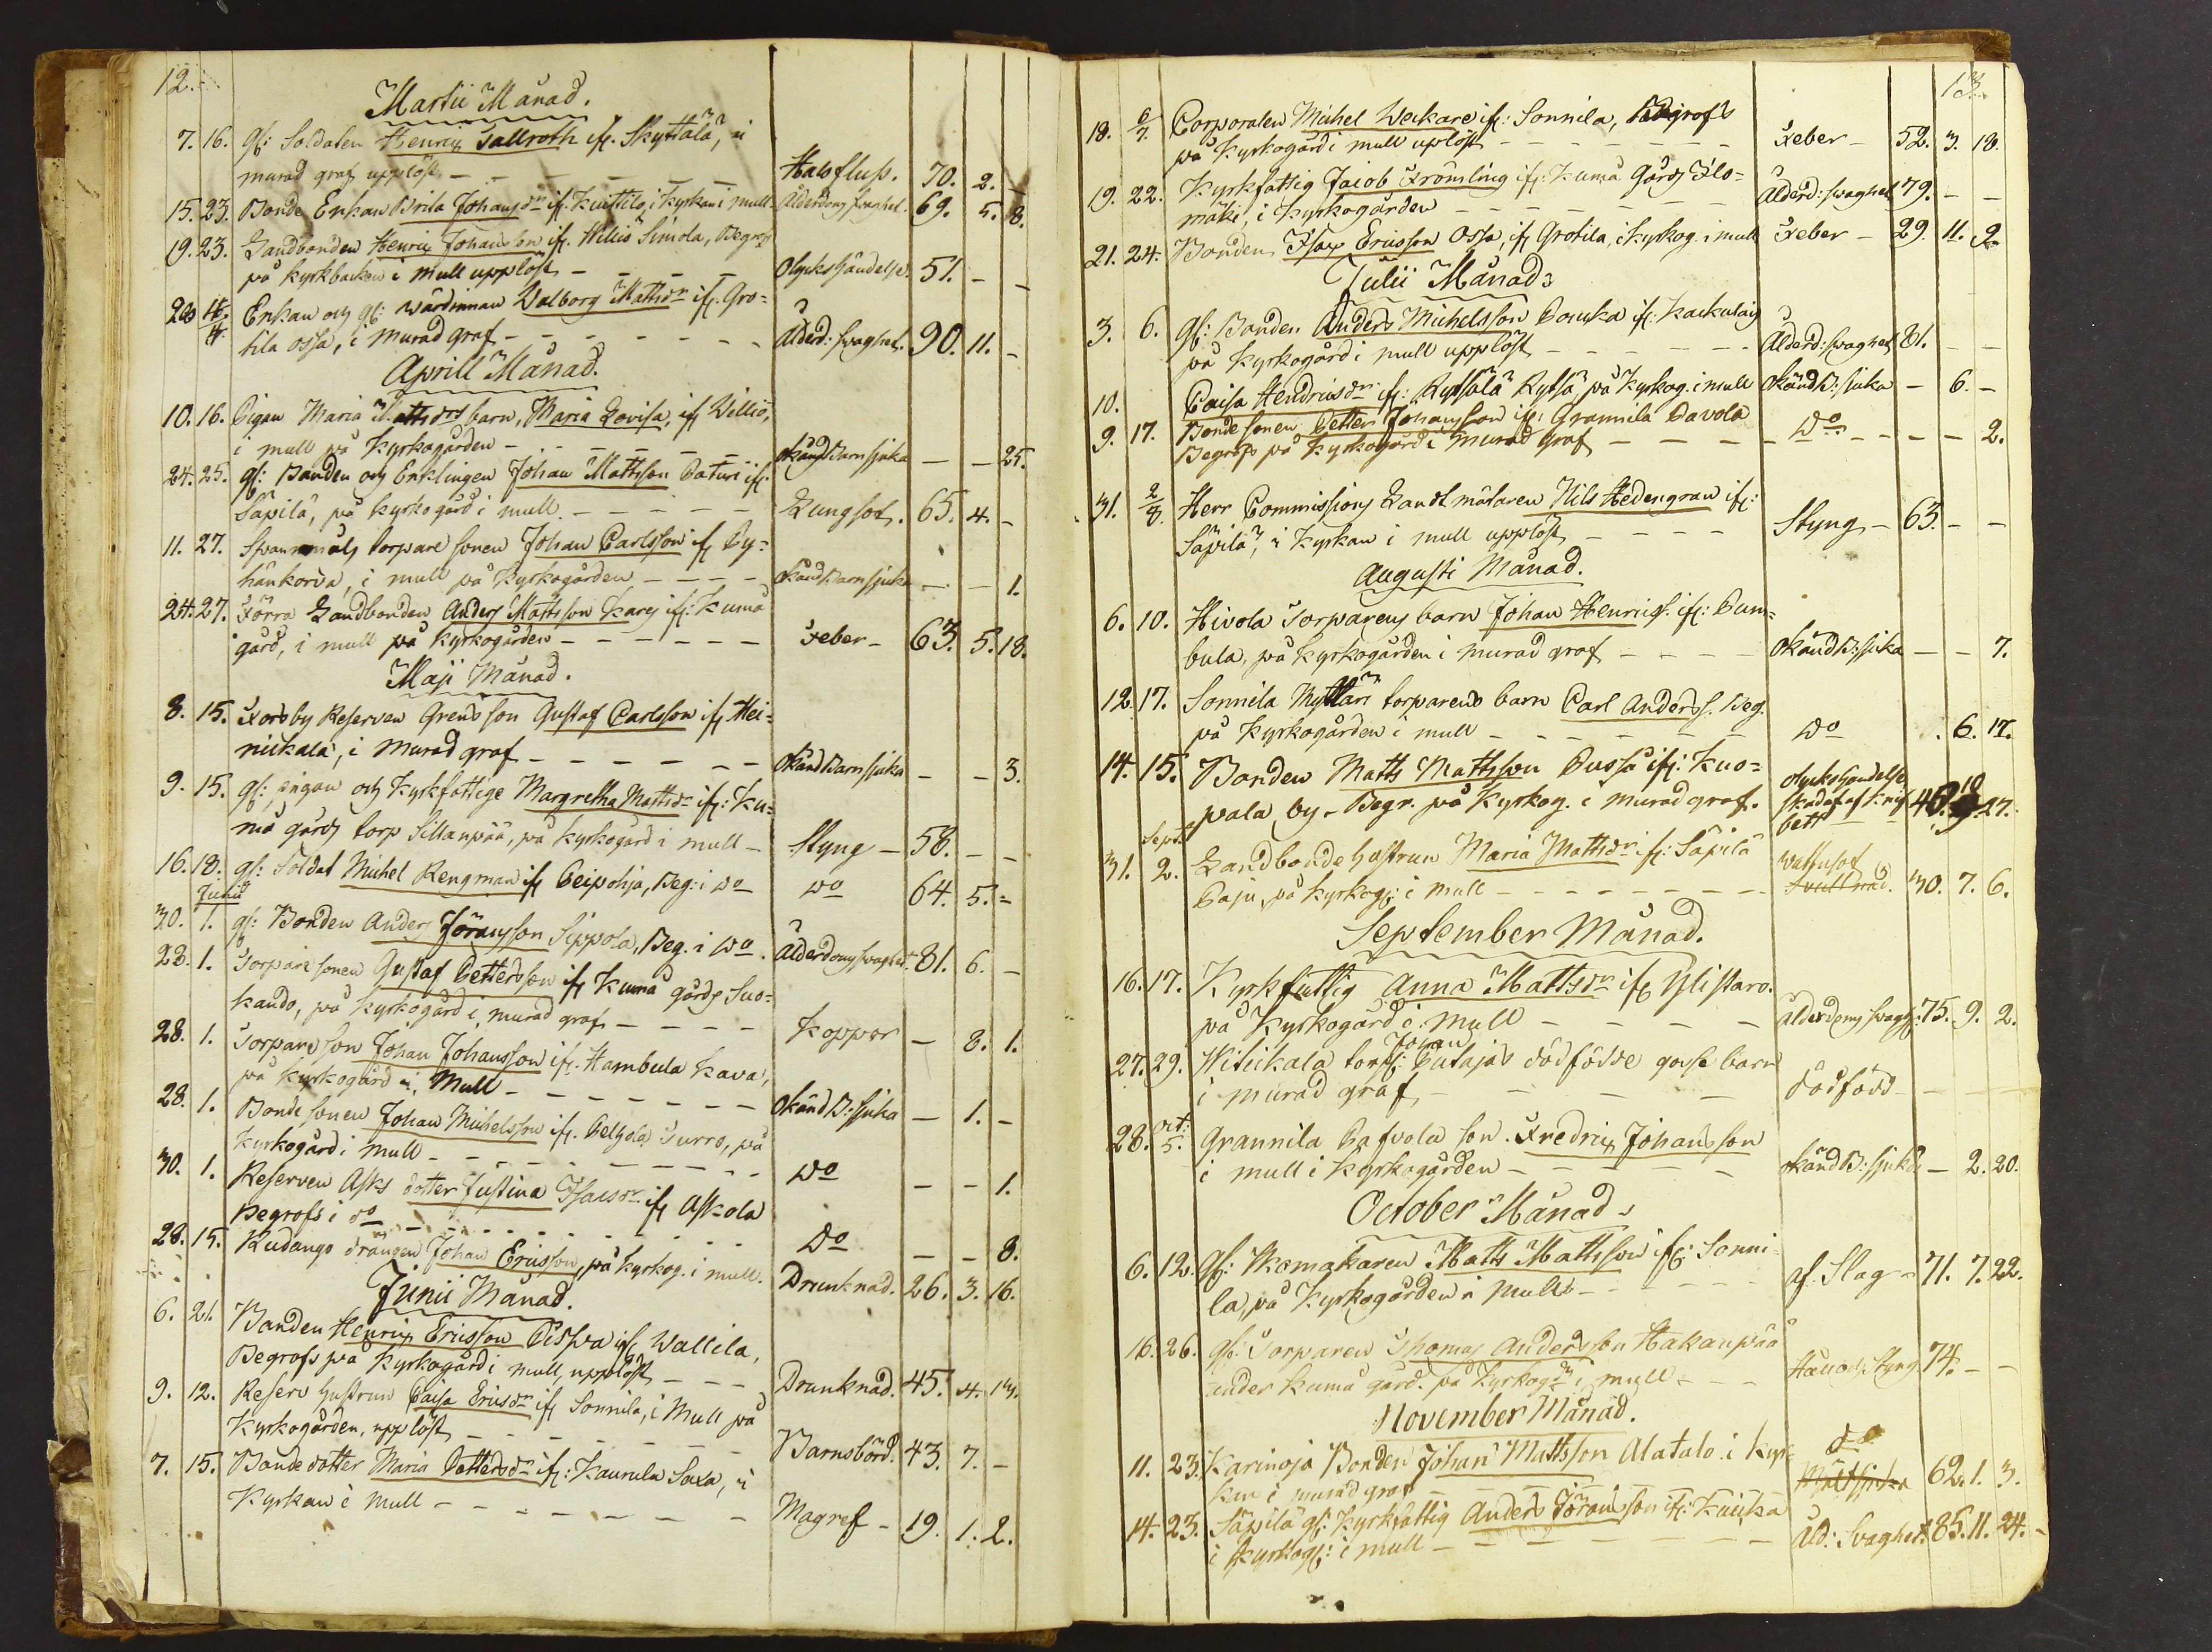 12.
Martii Månad.
7. 16. gl: Soldaten Henric Tallroth ifr. Skyttälä, i
murad graf upplöst - Halsfluss. 70. 2. -
15. 23. Bonde Enkan Brita Johansdr ifr. Kuittilo, i Kyrkan i mull - Ålderdoms svaghet. 69. 5. 8.
19. 23. Landbonden Henric Johansson ifr. Willio Simola, Begrofs
på kyrkbacken i mull upplöst - Olyckshändelse. 51. - -
Enkan och gl: wärdinnan Walborg Mattsdr ifr. Gro=
tila Ossa, i murad graf - Ålderd: svaghet. 90. 11. -
Aprill Månad.
10. 16. Pigan Maria Mattsdrs barn, Maria Lovisa, ifr Willio,
i mull på Kyrkogården - okänd Barnsjuka - - 25.
24. 25. gl: Bonden och Enklingen Johan Mattsson Paturi ifr.
Säpilä, på kyrkogård i mull - Lungsot. 65. 4. -
11. 27. Spannmåls torpare sonen Johan Carlsson ifr Py=
hänkorva, i mull på Kyrkogården - okänd Barnsjuka - - 1.
24. 27. Förra Landbonden Anders Mattsson Karej ifr: Kumå
gård, i mull på Kyrkogården - Feber - 63. 5. 18.
Maji Månad.
8. 15. Forsby Reserven Grens son Gustaf Carlsson ifr Hei=
nickala, i murad graf - okänd Barnsjuka - - 3.
9. 15. gl: pigan och Kyrkfattige Margretha Mattsdr ifr: Ku=
må gårds torp Sillanpää, på kyrkogård i mull - Styng - 58. - -
16. 18. gl: Soldat Michel Rengman ifr Peipohja, Beg: i do do 64. 5. =
Junii
30. 1. gl: Bonden Anders Jöransson Sippola, Beg. i do. Ålderdoms svaghet. 81. 6. -
28. 1. Torpare sonen Gustaf Pettersson ifr Kumå gårds Suo=
kando, på Kyrkogård i murad graf - Koppor - 8. 1.
28. 1. Torpare son Johan Johansson ifr. Hambula Kava,
på kyrkogård i Mull - okänd B: sjuka - 1. -
28. 1. Bonde sonen Johan Michelsson ifr. Pelhola Turro, på
Kyrkogård i mull - do - - 1.
30. 1. Reserven Asks dotter Justina Isacsdr ifr Askola
Begrofs i do - do - - 8.
28. 15. Kudango drängen Johan Ericsson, på kyrkog. i mull. Drunknad. 26. 3. 16.
Junii Månad.
6. 21. Bonden Henric Ericsson Pispa ifr Wallila,
Begrofs på Kyrkogård i mull, upplöst - Drunknad. 45. 4. 14.
9. 12. Reserv hustrun Caisa Ericsdr ifr Sonnila, i Mull på
Kyrkogården, upplöst - Barnsbörd. 43. 7. -
7. 15. Bonde dotter Maria Pettersdr ifr: Kaurula Saxa, i
Kyrkan i mull - Magref - 19. 1. 2.
13.
18. 6/7. Corporalen Michel Weckare ifr: Sonnila,
på Kyrkogård i mull uplöst - Feber - 52. 3. 18.
19. 22. Kyrkfattig Jacob Frömling ifr: Kumå Gårds Ilo=
mäki, i Kyrkogården - Ålderd: svaghet 79. - -
21. 24. Bonden Isac Ericsson Ossa, ifr Grotila, i kyrkog. i mull Feber - 29. 11. 2.
Julii Månad
3. 6. gl: Bonden Anders Michelsson Pouka ifr: Kackulais
på Kyrkogård i mull upplöst - Ålderd: svaghet 81. - -
10. Caisa Hendricsdr ifr: Rytsälä Rytsä, på Kyrkog. i mull okänd B: sjuka - 6. -
9. 17. Bonde sonen Petter Johansson ifr: Grannila Pavola
Begrofs på Kyrkogård i murad graf - do - - 2.
31. 2/8. Herr Commissions Landtmätaren Nils Hedengran ifr:
Säpilä, i Kyrkan i mull upplöst - Styng - 63. - -
Augusti Månad.
6. 10. Hivola Torparens barn Johan Henrics. ifr: Pum=
bula, på Kyrkogården i murad graf - okänd B: sjuka - - 7.
12. 17. Sonnila Myllari torparens barn Carl Anderss. Beg.
på Kyrkogården i mull - do . 6. 17.
14. 15. Bonden Matts Mattsson Pussa ifr: Kuo=
pala by - Begr. på Kyrkog. i murad graf. Olyckshändelse
skadat af Knif
bett 27.
Sept.
31. 2. Landbonde hustrun Maria Mattsdr ifr: Säpilä
Paju, på kyrkog: i mull - wattusot 30. 7. 6.
September Månad.
16. 17. Kyrkfattig Anna Mattsdr ifr Ylistaro.
på Kyrkogård i Mull - ålderdoms svagh: 75. 9. 2.
27. 29. Witickala torp: Johan Patajas dödfödde gosse barn
i murad graf - dödfödd - - -
28. Oct: 5. Grannila Pafvola son. Fredric Johansson
i mull i Kyrkogården - okänd B: sjuka - 2. 20.
October Månad
6. 12. gl: Skomakaren Matts Mattsson ifr: Sonni=
la, på Kyrkogården i Mull - af Slag - 71. 7. 22.
16. 26. gl: Torparen Thomas Andersson Hakanpää
under Kumå gård. på Kyrkog: i mull - Håll och Styng 74. - -
November Månad.
11. 23. Karinoja Bonden Johan Mattsson Alatalo i kyr=
kan i murad graf - do Mältsjuka 62. 1. 3.
14. 23. Säpilä gl: Kyrkfattig Anders Jöransson ifr: Kauka
i Kyrkog: i mull - Åld: Svaghet. 85. 11. 24.